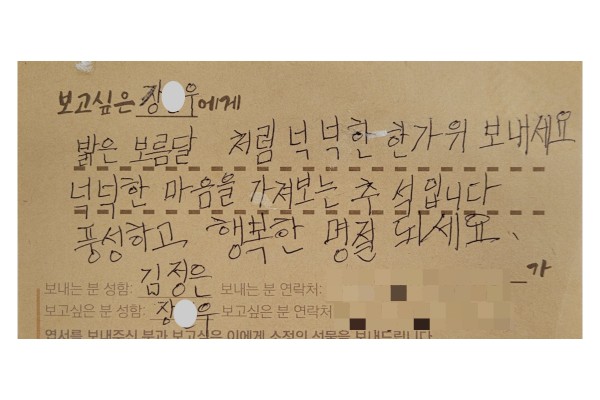 보고싶은 장 우에게
밝은 보름달 처럼 넉넉한 한가위 보내세요
넉넉한 마음을 가져보는 추석입니다
풍성하고 행복한 명절 되세요.
_가
보내는 분 성함: 김정은 보내는 분 연락처:
보고싶은 분 성함: 장 우 보고싶은 분 연락처
엽서를 보내주신 분과 보고싶은 이에게 소정의 선물을 보내드립니다